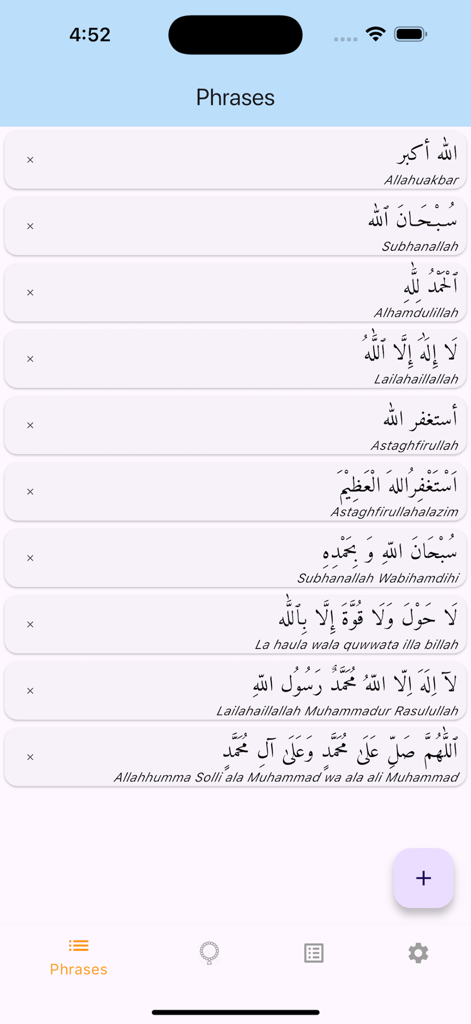 4:52
Phrases
الله أكبر
×
Allahuakbar
سُبْحَانَ ٱللَّٰه
×
Subhanallah
ٱلْحَمْدُ لِلَّٰهِ
×
Alhamdulillah
لَا إِلَٰهَ إِلَّا ٱللَّٰهُ
×
Lailahaillallah
أستغفر الله
×
Astaghfirullah
اَسْتَغْفِرُاللهَ الْعَظِيْمَ
×
Astaghfirullahalazim
سُبْحَانَ اللّهِ وَ بِحَمْدِهِ
×
Subhanallah Wabihamdihi
لَا حَوْلَ وَلَا قُوَّةَ إِلَّا بِٱللَّٰه
×
La haula wala quwwata illa billah
لآ اِلَهَ اِلّا اللّهُ مُحَمَّدٌ رَسُوُل اللّهِ
×
Lailahaillallah Muhammadur Rasulullah
ٱللَّٰهُمَّ صَلِّ عَلَىٰ مُحَمَّدٍ وَعَلَىٰ آلِ مُحَمَّدٍ
×
Allahhumma Solli ala Muhammad wa ala ali Muhammad
+
Phrases